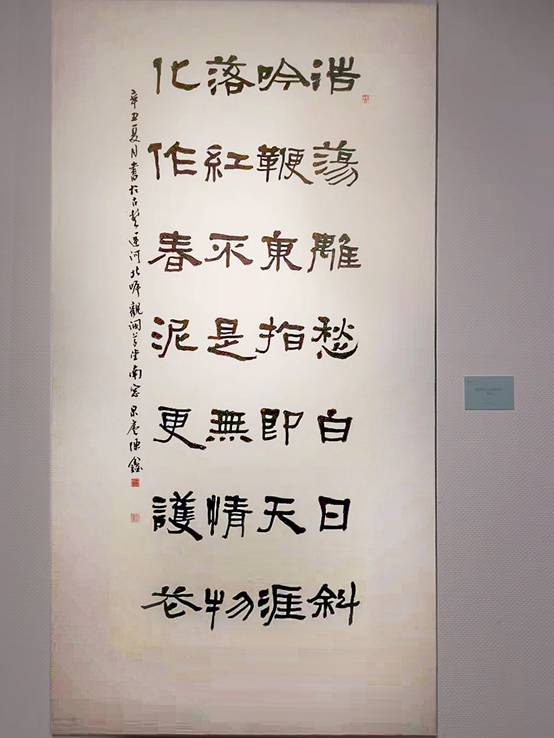 浩蕩離愁白日斜
吟鞭東指即天涯
落紅不是無情物
化作春泥更護花
辛丑夏月書於古楚運河北岸觀瀾草堂南窗